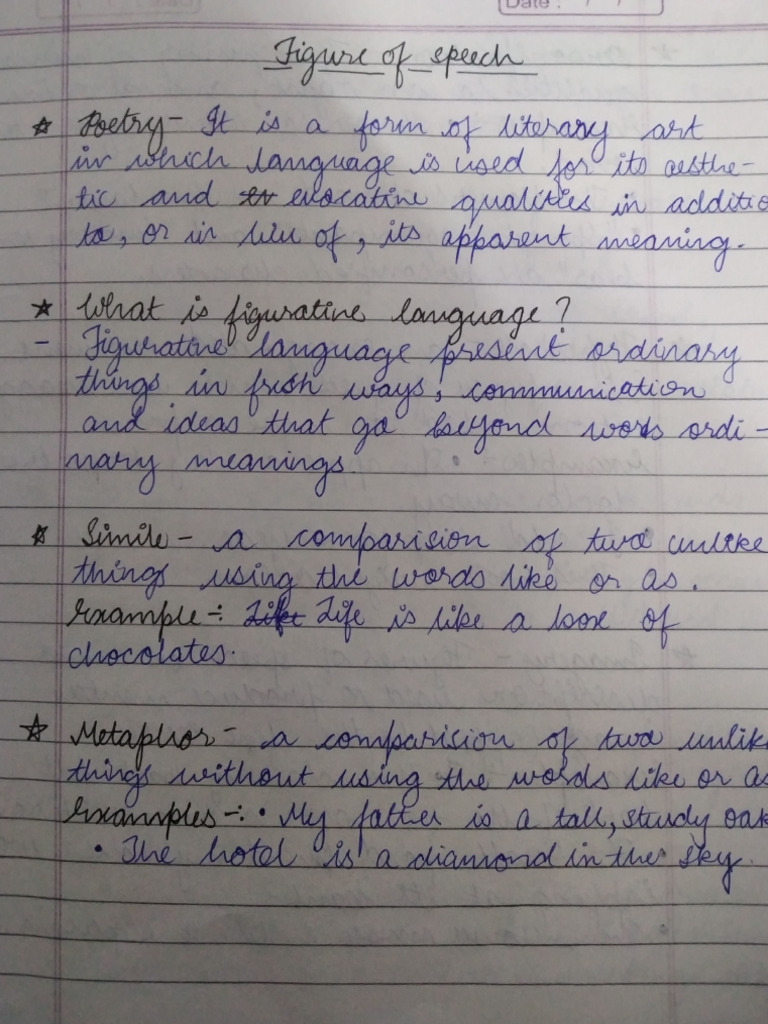 Date : / /
Figure of speech
☆ Poetry - It is a form of literary art
in which language is used for its aesthe-
tic and evocative qualities in additio
to, or in lieu of, its apparent meaning.
☆ What is figurative language?
- Figurative language present ordinary
things in fresh ways, communication
and ideas that go beyond words ordi-
nary meanings.
☆ Simile - a comparision of two unlike
things using the words like or as.
Example -: Life is like a box of
chocolates.
☆ Metaphor - a comparision of two unlik
things without using the words like or as
Examples -: • My father is a tall, study oak
• The hotel is a diamond in the sky.